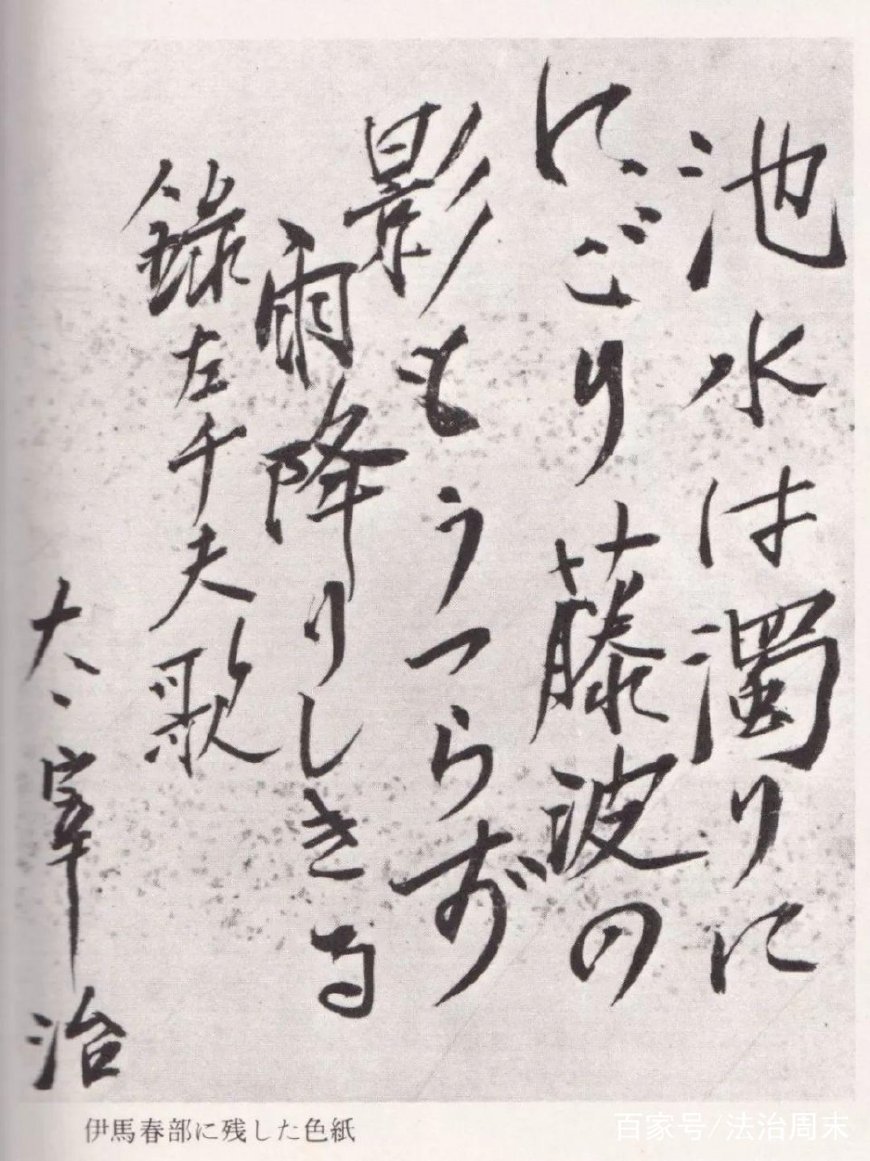 池水は濁りに
にごり藤波の
影もうつらず
雨降りしきる
錄左千夫歌
太宰治
伊馬春部に残した色紙
百家号/法治周末